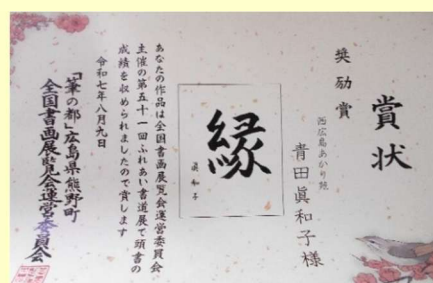 賞状
奨励賞
西広島あかり苑
青田眞和子様
縁
眞和子
あなたの作品は全国書画展覧会運営委員会
主催の第五十一回ふれあい書道展で頭書の
成績を収められましたので賞します
令和七年八月九日
「筆の都」広島県熊野町
全国書画展覧会運営委員会